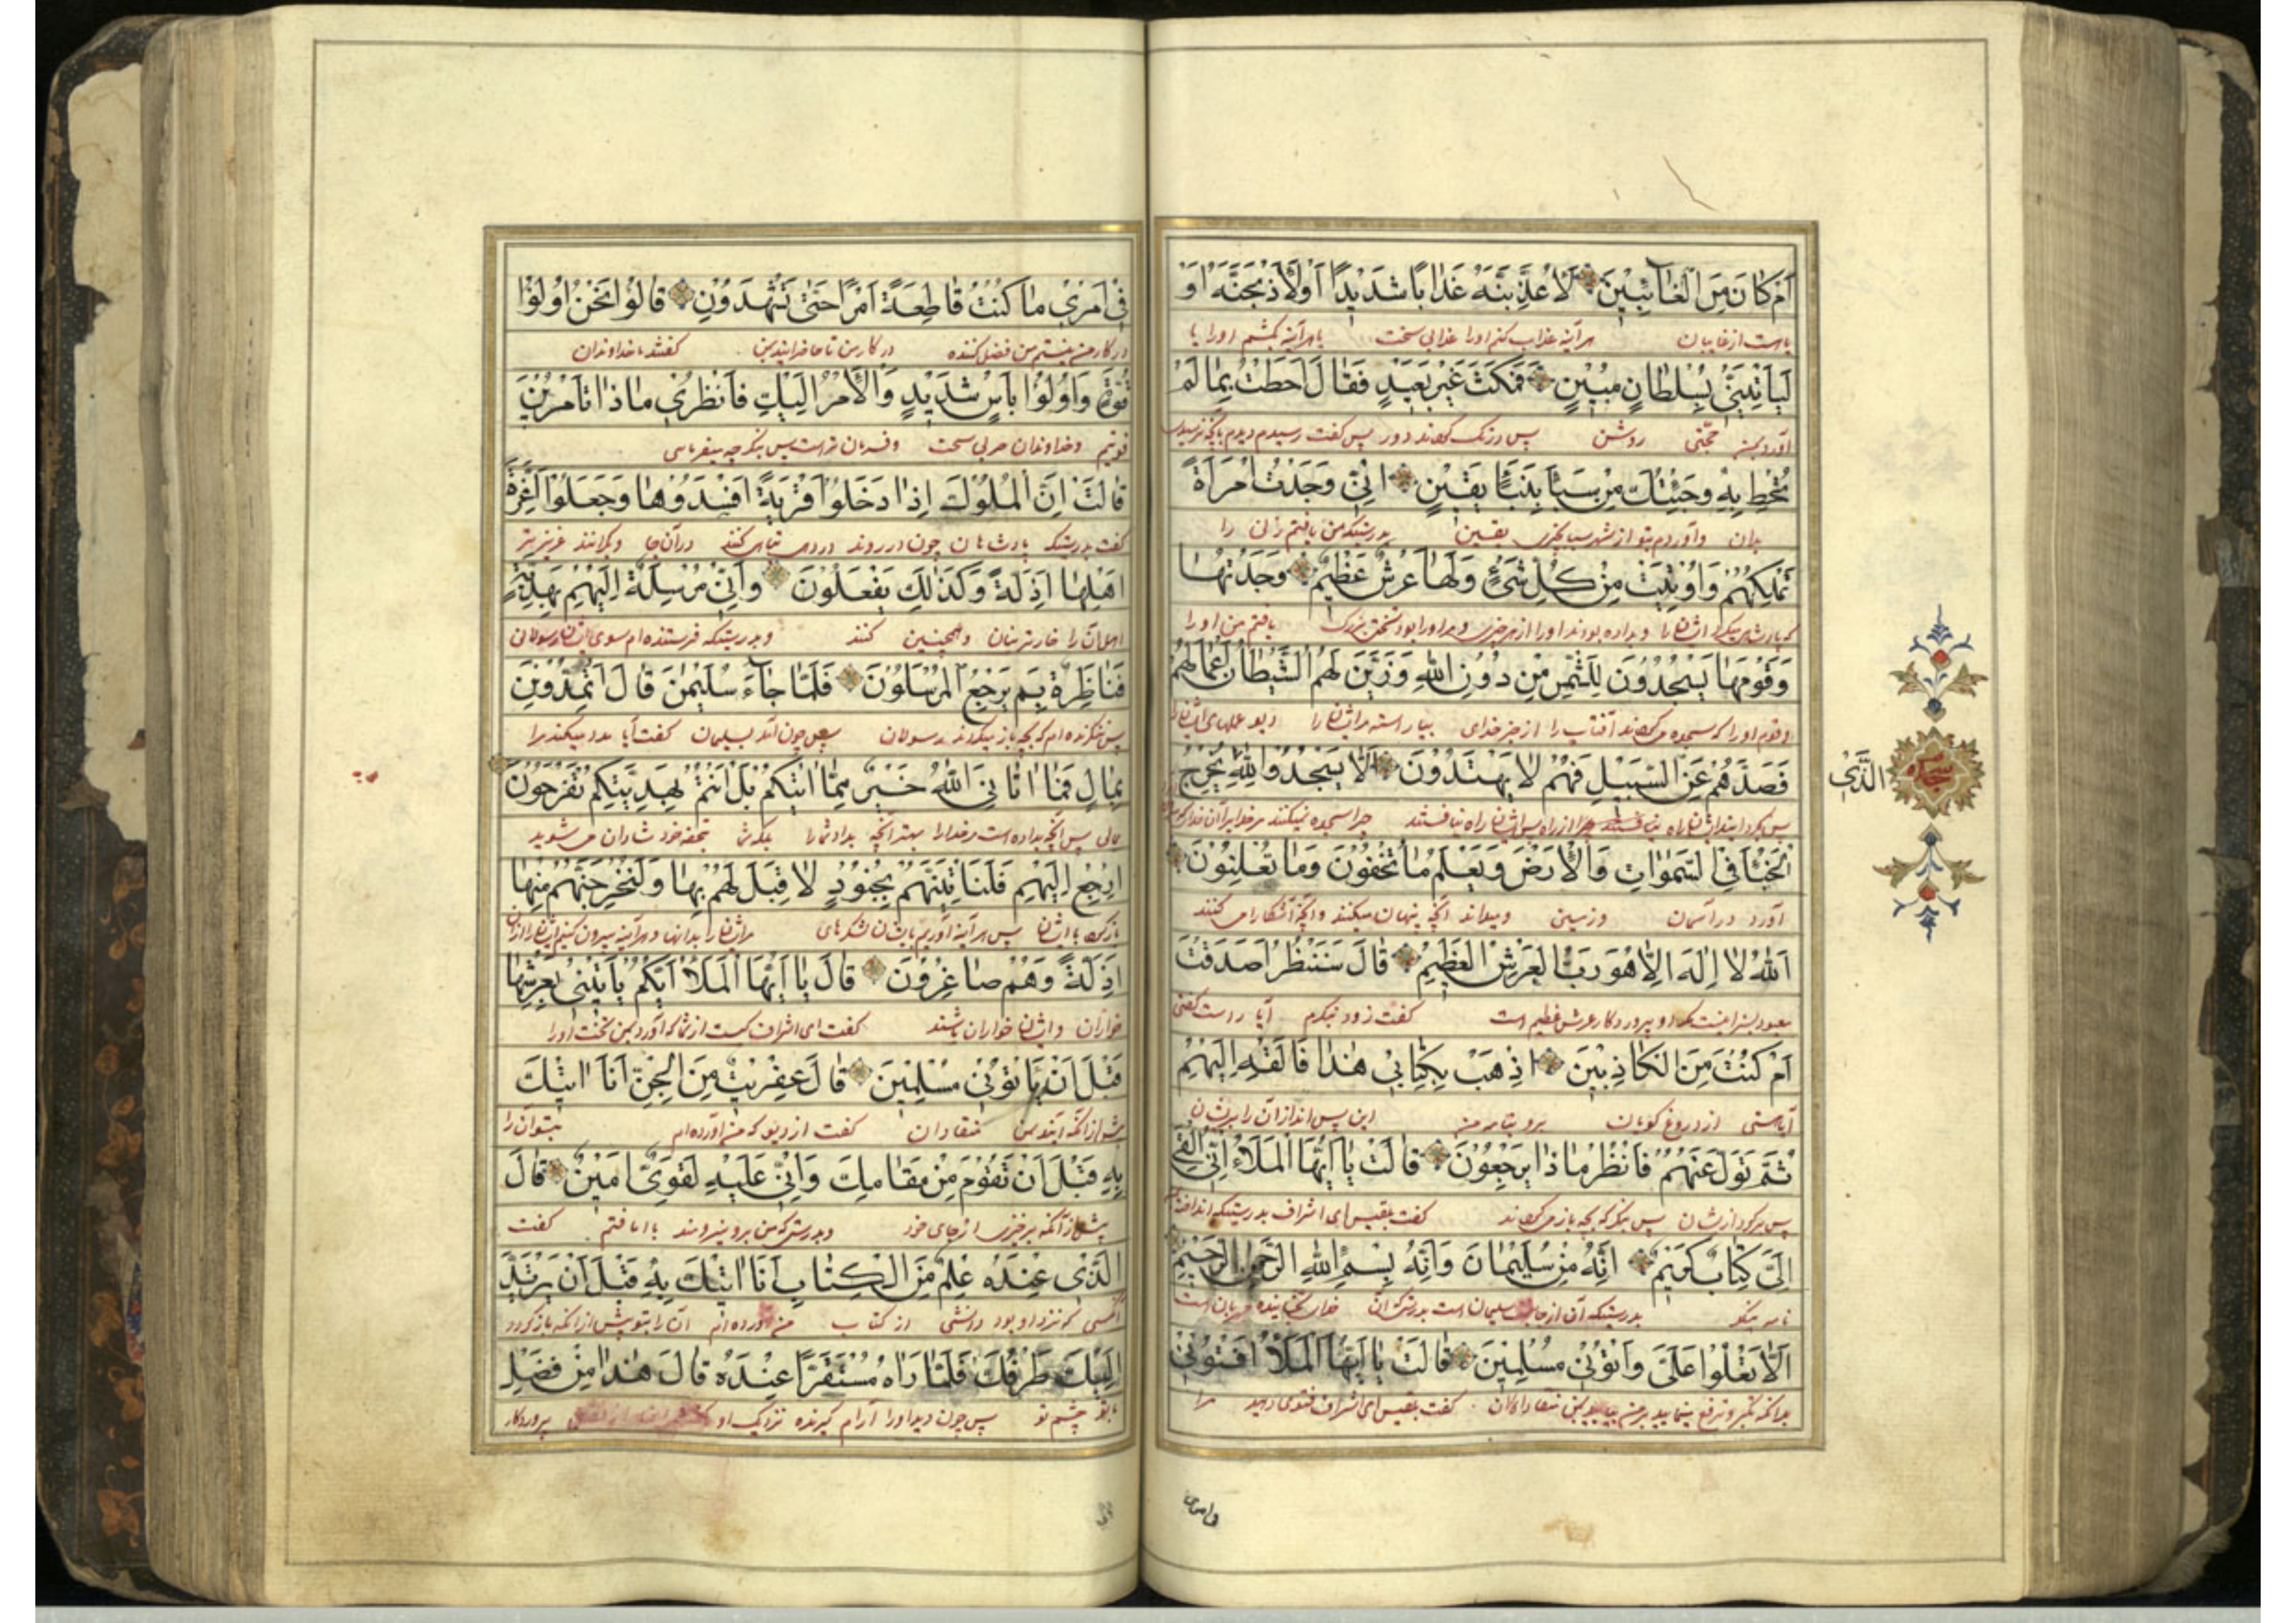 اَمْ كَانَ مِنَ الْغَائِبِينَ لَاُعَذِّبَنَّهُ عَذَابًا شَدِيدًا اَوْ لَاَذْبَحَنَّهُ اَوْ
یا هست از غایبان هرآینه عذاب کنم اورا عذابی سخت یا هرآینه بکشم اورا یا
لَيَأْتِيَنِّي بِسُلْطَانٍ مُبِينٍ فَمَكَثَ غَيْرَ بَعِيدٍ فَقَالَ اَحَطْتُ بِمَا لَمْ
آورد بمن حجّتی روشن پس درنگ کردند دور پس کفت رسیدم دیدم بآنچه نرسیدی
تُحِطْ بِهِ وَجِئْتُكَ مِنْ سَبَاٍ بِنَبَاٍ يَقِينٍ اِنِّي وَجَدْتُ امْرَاَةً
بدان وآوردم بتو از شهر سبا بخبری یقین بدرستیکه من یافتم زنی را
تَمْلِكُهُمْ وَاُوتِيَتْ مِنْ كُلِّ شَيْءٍ وَلَهَا عَرْشٌ عَظِيمٌ وَجَدْتُهَا
که پادشاهی میکرد ایشانرا وداده بودند اورا از هر چیزی ومر اورا بود تختی بزرگ یافتم من اورا
وَقَوْمَهَا يَسْجُدُونَ لِلشَّمْسِ مِنْ دُونِ اللهِ وَزَيَّنَ لَهُمُ الشَّيْطَانُ اَعْمَالَهُمْ
وقوم اورا که سجده میکردند آفتاب را از جز خدای بیاراسته مر ایشانرا دیو عملهای ایشانرا
فَصَدَّهُمْ عَنِ السَّبِيلِ فَهُمْ لَا يَهْتَدُونَ اَلَّا يَسْجُدُوا لِلّٰهِ يُخْرِجُ
الَّذِي
سجده
چرا سجده نمیکنند مر خدایرا آن خدا که
الْخَبْءَ فِي السَّمٰوَاتِ وَالْاَرْضِ وَيَعْلَمُ مَا تُخْفُونَ وَمَا تُعْلِنُونَ
آورد در آسمان وزمین ومیداند آنچه پنهان میکنند وآنچه آشکارا می کنند
اَللهُ لَا اِلٰهَ اِلَّا هُوَ رَبُّ الْعَرْشِ الْعَظِيمِ قَالَ سَنَنْظُرُ اَصَدَقْتَ
معبود بسزا نیست مکر او پروردکار عرش عظیم است کفت زود بنگرم آیا راست کفتی
اَمْ كُنْتَ مِنَ الْكَاذِبِينَ اِذْهَبْ بِكِتَابِي هٰذَا فَاَلْقِهْ اِلَيْهِمْ
از دروغ کویان برو بنامه من این پس انداز آن را
ثُمَّ تَوَلَّ عَنْهُمْ فَانْظُرْ مَاذَا يَرْجِعُونَ قَالَتْ يَا اَيُّهَا الْمَلَؤُ اِنِّي اُلْقِيَ
پس برکرد از یشان پس بنگر که بچه باز می کردند کفت بلقیس ای اشراف بدرستیکه انداخته
اِلَيَّ كِتَابٌ كَرِيمٌ اِنَّهُ مِنْ سُلَيْمَانَ وَاِنَّهُ بِسْمِ اللهِ الرَّحْمٰنِ الرَّحِيمِ
بدرستیکه آن از جانب سلیمان است بدرستیکه آن خدای بخشاینده مهربان است
اَلَّا تَعْلُوا عَلَيَّ وَاْتُونِي مُسْلِمِينَ قَالَتْ يَا اَيُّهَا الْمَلَؤُ اَفْتُونِي
کفت بلقیس ای اشراف فتوی دهید مرا
فِي اَمْرِي مَا كُنْتُ قَاطِعَةً اَمْرًا حَتّٰى تَشْهَدُونِ قَالُوا نَحْنُ اُولُوا
در کار من نیستم من فصل کننده در کار من تا حاضر آیند من کفتند ما خداوندان
قُوَّةٍ وَاُولُوا بَاْسٍ شَدِيدٍ وَالْاَمْرُ اِلَيْكِ فَانْظُرِي مَاذَا تَاْمُرِينَ
قوتیم وخداوندان حربی سخت وفرمان تراست پس بنگر چه میفرمایی
قَالَتْ اِنَّ الْمُلُوكَ اِذَا دَخَلُوا قَرْيَةً اَفْسَدُوهَا وَجَعَلُوا اَعِزَّةَ
کفت بدرستیکه پادشاهان چون در روند در دهی تباهی کنند در آن جا وکردانند عزیزتر
اَهْلِهَا اَذِلَّةً وَكَذٰلِكَ يَفْعَلُونَ وَاِنِّي مُرْسِلَةٌ اِلَيْهِمْ بِهَدِيَّةٍ
اهل آن را خارترینان وهمچنین کنند وبدرستیکه فرستنده ام سوی ایشان رسولانی
فَنَاظِرَةٌ بِمَ يَرْجِعُ الْمُرْسَلُونَ فَلَمَّا جَاءَ سُلَيْمٰنَ قَالَ اَتُمِدُّونَنِ
پس نگرنده ام که بچه باز میکردند رسولان پس چون آمد بسلیمان کفت آیا مدد میکنید مرا
بِمَالٍ فَمَا اٰتَانِيَ اللهُ خَيْرٌ مِمَّا اٰتٰيكُمْ بَلْ اَنْتُمْ بِهَدِيَّتِكُمْ تَفْرَحُونَ
مالی پس آنچه بداده است مر خدا را بهتر آنچه بداد شما را بلکه شما بتحفه خود شادان می شوید
اِرْجِعْ اِلَيْهِمْ فَلَنَاْتِيَنَّهُمْ بِجُنُودٍ لَا قِبَلَ لَهُمْ بِهَا وَلَنُخْرِجَنَّهُمْ مِنْهَا
باز کرد با ایشان پس هرآینه آوریم بایشان لشکرهای مر ایشانرا بدانها وهرآینه بیرون کنیم ایشانرا از آن
اَذِلَّةً وَهُمْ صَاغِرُونَ قَالَ يَا اَيُّهَا الْمَلَؤُ اَيُّكُمْ يَاْتِينِي بِعَرْشِهَا
خواران وایشان خواران باشند کفت ای اشراف کیست از شما که آورد بمن تخت اورا
قَبْلَ اَنْ يَاْتُونِي مُسْلِمِينَ قَالَ عِفْرِيتٌ مِنَ الْجِنِّ اَنَا اٰتِيكَ
پیش از آنکه آیند بمن منقادان کفت از دیو که من آورده ام بتو آن را
بِهِ قَبْلَ اَنْ تَقُومَ مِنْ مَقَامِكَ وَاِنِّي عَلَيْهِ لَقَوِيٌّ اَمِينٌ قَالَ
پیش از آنکه برخیزی از جای خود وبدرستیکه من برو نیرومند با امانتم کفت
الَّذِي عِنْدَهُ عِلْمٌ مِنَ الْكِتَابِ اَنَا اٰتِيكَ بِهِ قَبْلَ اَنْ يَرْتَدَّ
آنکسی که نزد او بود دانشی از کتاب من آورده ام آن را بتو پیش از آنکه باز کردد
اِلَيْكَ طَرْفُكَ فَلَمَّا رَاٰهُ مُسْتَقِرًّا عِنْدَهُ قَالَ هٰذَا مِنْ فَضْلِ
بتو چشم تو پس چون دید اورا آرام گیرنده نزدیک او پروردکار